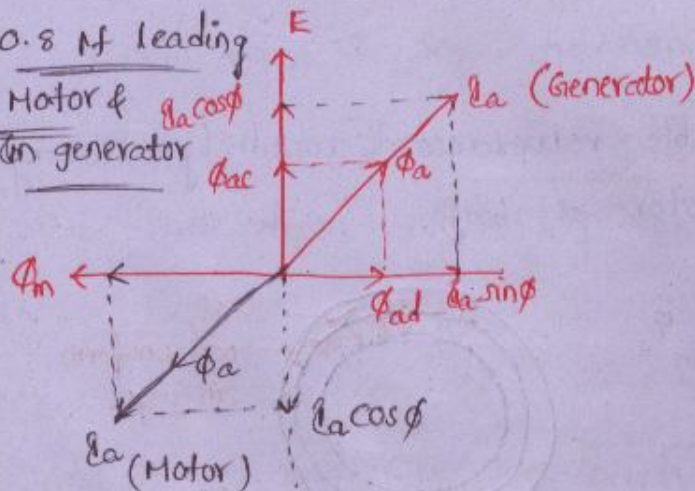 0.8 Pf leading
Motor &
In generator
E
Ia cosϕ
Ia (Generator)
ϕac
ϕa
ϕm
ϕad
Ia sinϕ
ϕa
Ia cosϕ
Ia (Motor)